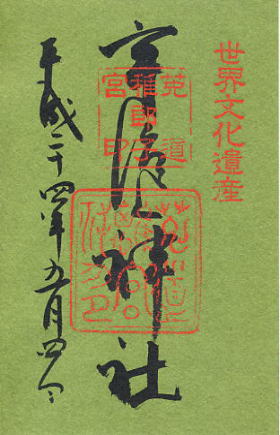 世界文化遺産
菟道
稚郎子
宮印
宇治上神社
平成二十四年五月四日